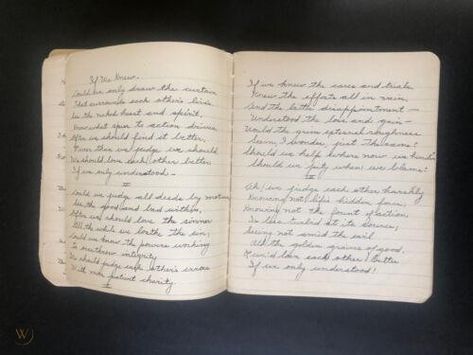 If We Knew.
Could we only draw the curtain
That surrounds each other's lives
See the naked heart and spirit,
Know what spur to action drives
Often we should find it better
Purer than we judge we should
We should love each other better
If we only understood —
II
Could we judge all deeds by motive
See the good and bad within,
Often we should love the sinner
All the while we loathe the sin,
Could we know the powers working
To overthrow integrity
We should judge each other's errors
With more patient charity.
If we knew the cares and trials
Knew the efforts all in vain
And the bitter disappointment —
Understood the loss and gain —
Would the grim external roughness
Seem, I wonder, just the same?
Should we help where now we hinder
Should we pity when we blame?
Ah, we judge each other harshly
Knowing not life's hidden force,
Knowing not the fount of action
Is less turbid at its source,
Seeing not amid the evil
All the golden grains of good,
O we'd love each other better
If we only understood!
W